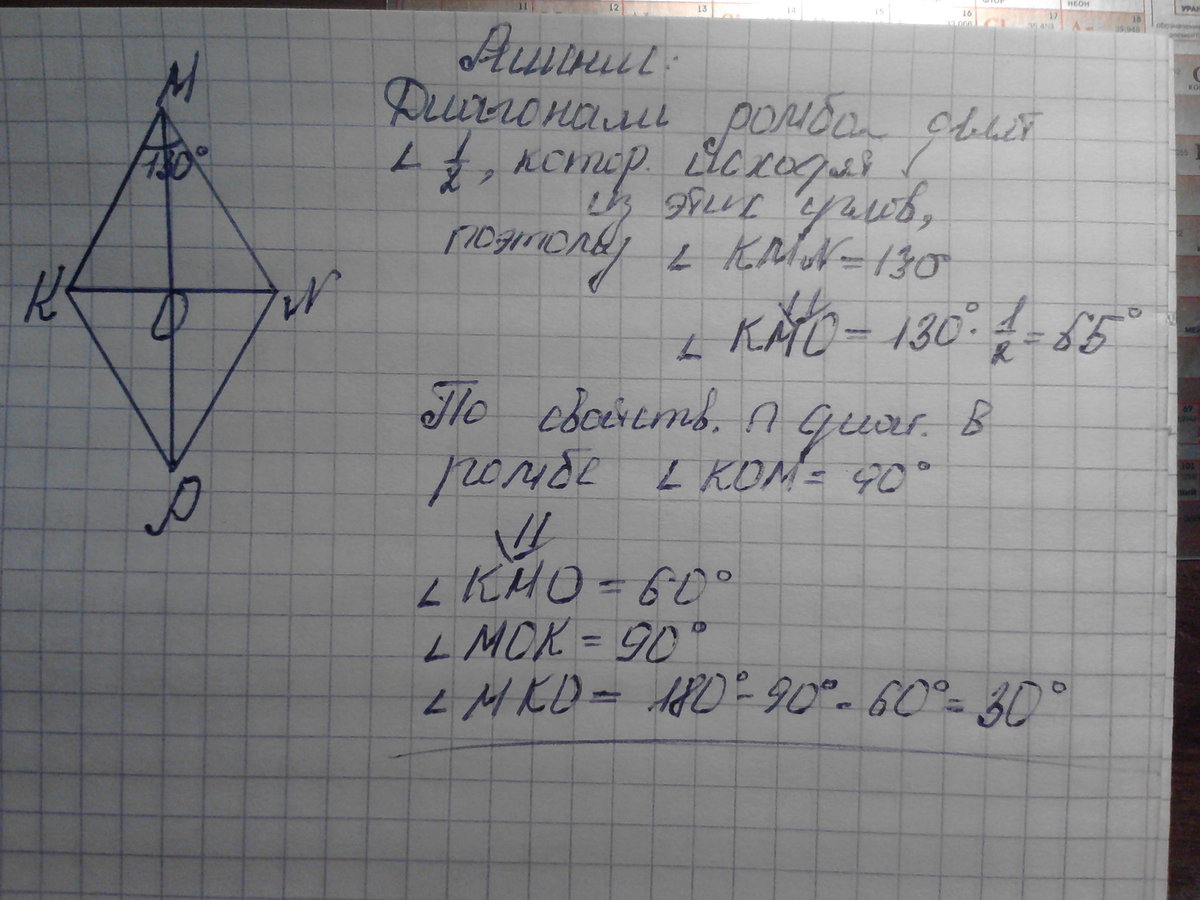 M
130°
K
O
N
Диагонали ромба делят
∠ 1/2, котор. исходят
из этих углов,
поэтому ∠ KMN = 130
∠ KMO = 130° · 1/2 = 65°
По свойств. П диаг. в
ромбе ∠ KOM = 90°
∠ KMO = 60°
∠ MOK = 90°
∠ MKO = 180° - 90° - 60° = 30°
11
12
13
14
15
16
17
18